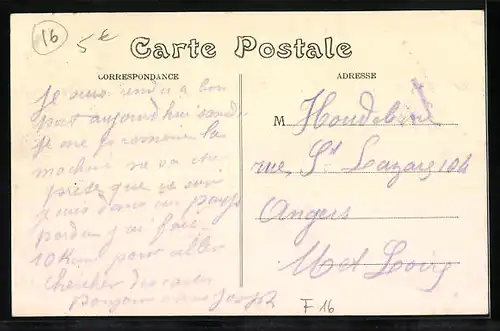 16
5€
Carte Postale
CORRESPONDANCE
ADRESSE
Je suis rendu a bon
port aujourd'hui
je me promène la
machine ne va
que ce soir
je suis dans un pays
perdu j'ai fait
10 Km pour aller
chercher des cartes
bonjour Joseph
M Houdebine
rue, St Lazare 104
Angers
M et Loire
F 16